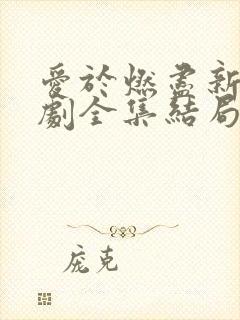 愛於燃盡新
劇全集結局
庞克